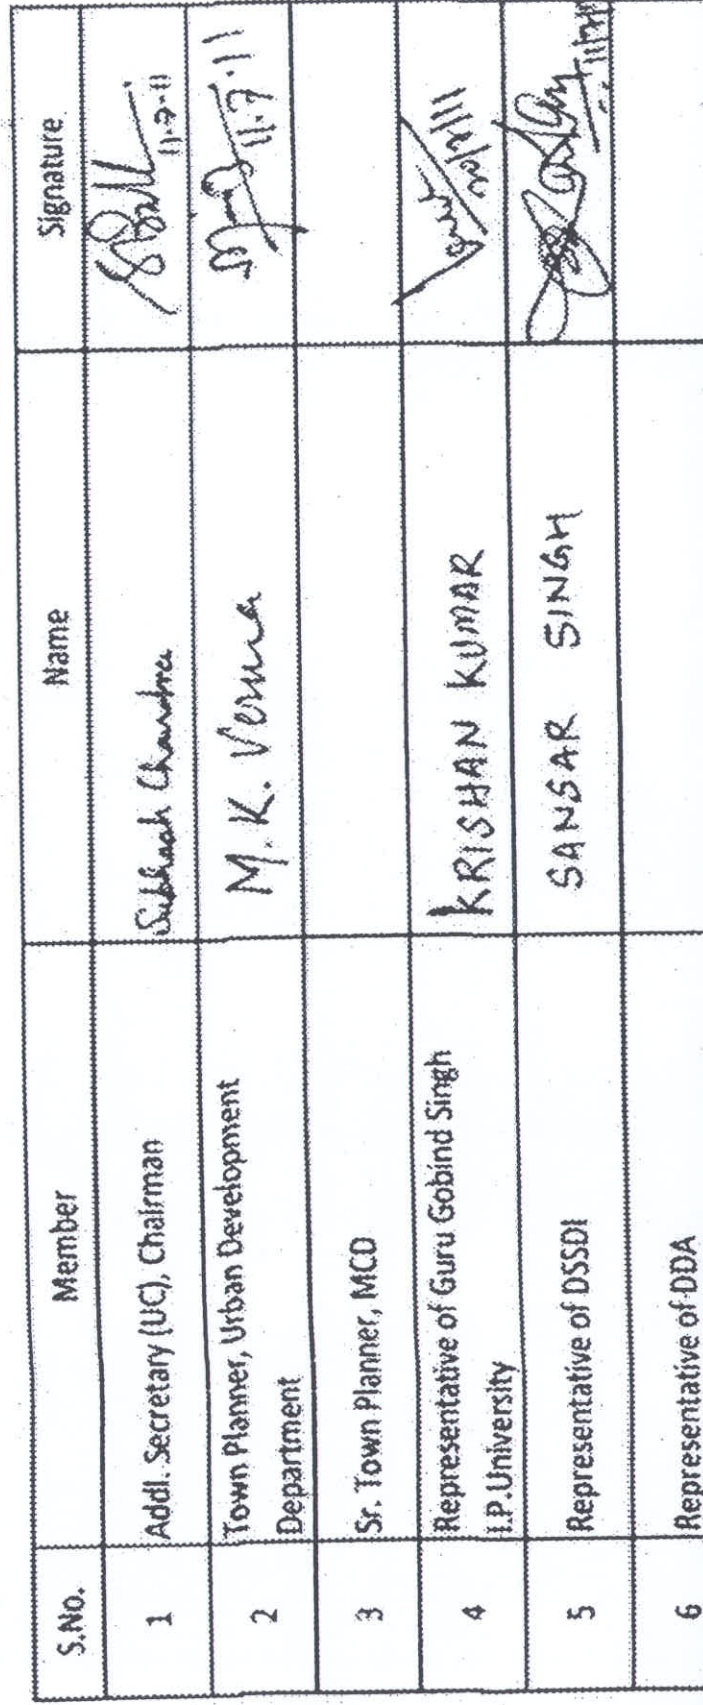 S.No. Member Name Signature
1 Addl. Secretary (UC), Chairman Subhash Chandra 11-7-11
2 Town Planner, Urban Development M. K. Verma 11.7.11
Department
3 Sr. Town Planner, MCD
4 Representative of Guru Gobind Singh KRISHAN KUMAR
I.P.University
5 Representative of DSSDI SANSAR SINGH
6 Representative of DDA